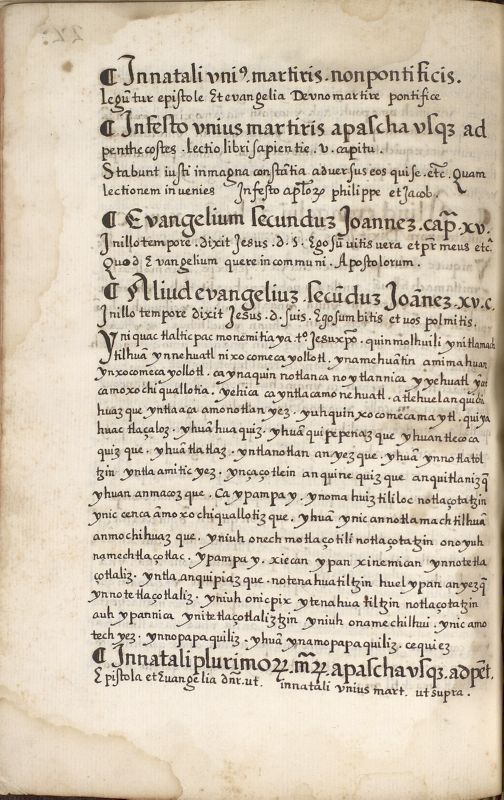 ¶ In natali uni⁹. martiris. non pontificis.
Legūtur epistole Et evangelia De uno martire pontifice
¶ In festo unius martiris a pascha usqꝫ ad
penthecostes. lectio libri sapientie. v. capitu.
Stabunt iusti in magna constātia adversus eos qui se. etc̄. Quam
lectionem invenies In festo apl̄oꝝ philippe et Jacob.
¶ Evangelium secunduꝫ Joanneꝫ. cap̄. xv.
In illo tempore. dixit Jesus. d. s. Ego sū vitis vera et pr̄ meus etc̄.
Quod Evangelium quere in communi. Apostolorum.
¶ Aliud evangeliuꝫ. secūduꝫ Joāneꝫ. xv. c.
In illo tempore dixit Jesus. d. suis. Ego sum bitis et vos polmitis.
Yni quac tlalticpac monemitiaya tº. Jesu xp̄o. quinmolhuili ynitlamach
tilhuā ynnehuatl nixocomecayollotl. ynamehuātin amimahuan
ynxocomecayollotl. ca yn aquin notlan ca no ytlannica yyehuatl
camo xochiquallotia. yehica ca yntlacamo nehuatl. atle huel anqui chi
huaꝫ que yntlaaca amo notlan yeꝫ. yuhquin xocomecamaytl. quiya
huac tlaçaloꝫ. yhuā huaquiꝫ. yhuā quipepenaꝫ que yhuan tlecoca
quiꝫ que. yhuā tlatlaꝫ. yntla notlan anyeꝫ que. yhuā ynnotlatol
tzin yntla amitic yeꝫ. ynçaçotlein anquinequiꝫ que anquitlaniꝫ q̄
yhuan anmacoꝫ que. Ca ypampa y. ynomahuiꝫtililoc notlaçotatzin
ynic cenca āmoxochiquallotiꝫ que. yhuā ynic annotlamachtilhuā
anmochihuaꝫ que. yniuh onechmotlaçotili notlaçotatzin ono yuh
namechtlaçotlac. ypampa y. xiecan ypan xinemican ynnotetla
çotlaliꝫ. yntla anquipiaꝫ que. notenahuatiltzin huel ypan anyeꝫ q̄
ynnotetlaçotlaliꝫ. yniuh onicpix ytenahuatiltzin notlaçotatzin
auh ypannica ynitetlaçotlalitzin yniuh onamechilhui. ynic amo
tech yeꝫ. ynnopapaquiliꝫ. yhuā ynamopapaquiliꝫ. cequieꝫ
¶ In natali plurimoꝝ. mr̄ꝝ. a pascha usqꝫ. ad pēt.
Epistola et Evangelia dn̄r. ut. in natali unius mart. ut supra.